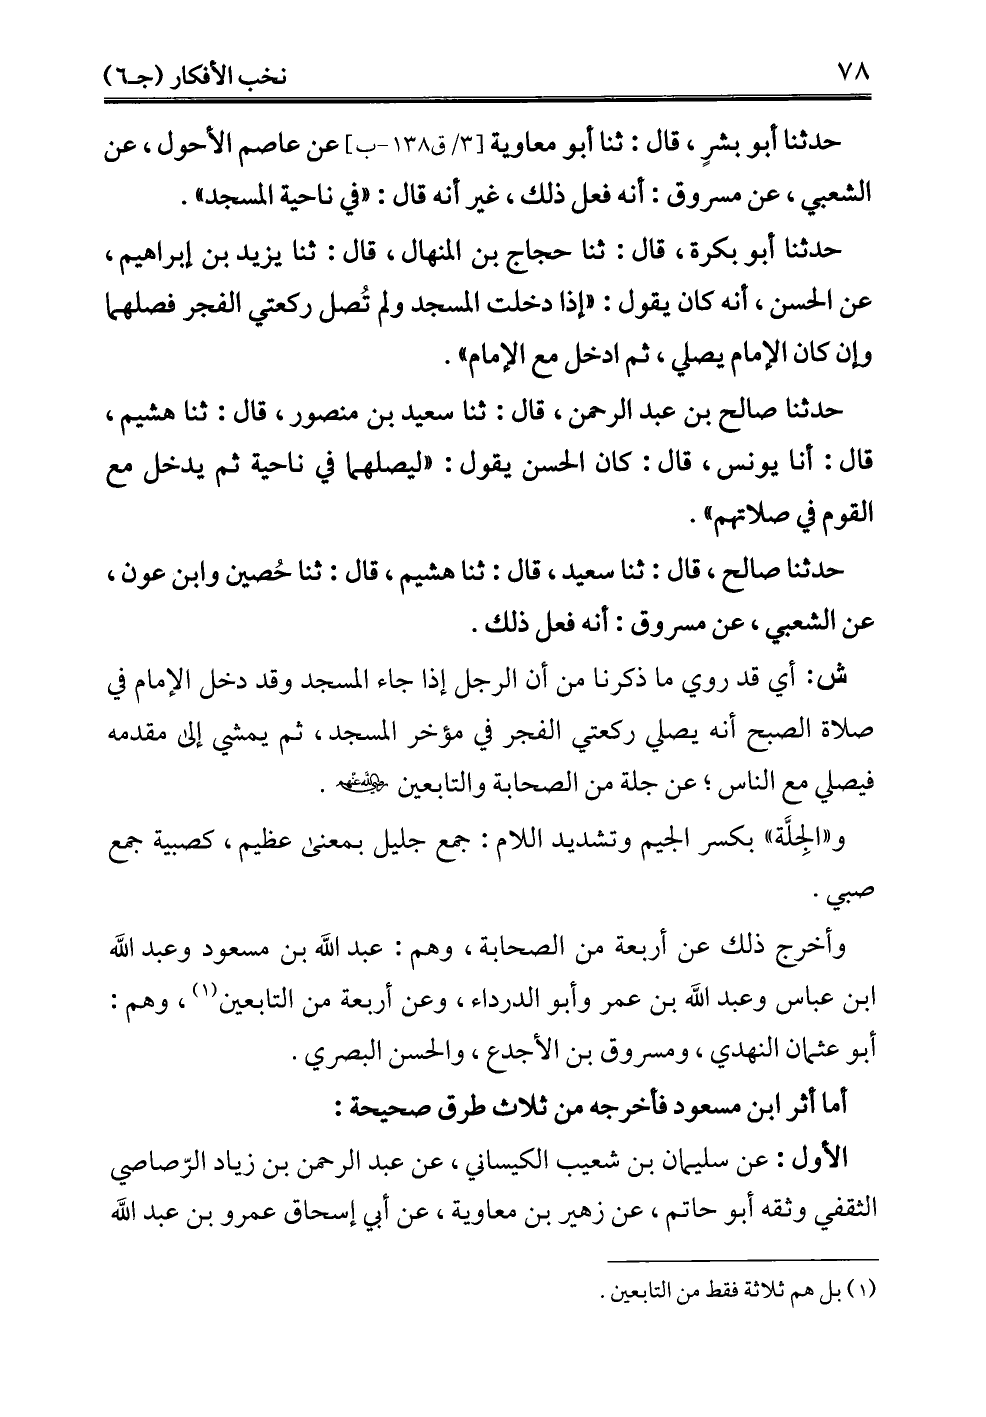 ٧٨
نخب الأفكار (جـ٦)
حدثنا أبو بشرٍ ، قال : ثنا أبو معاوية [٣/ ق١٣٨-ب] عن عاصم الأحول ، عن
الشعبي ، عن مسروق : أنه فعل ذلك ، غير أنه قال : «في ناحية المسجد» .
حدثنا أبو بكرة ، قال : ثنا حجاج بن المنهال ، قال : ثنا يزيد بن إبراهيم ،
عن الحسن ، أنه كان يقول : «إذا دخلت المسجد ولم تُصل ركعتي الفجر فصلهما
وإن كان الإمام يصلي ، ثم ادخل مع الإمام» .
حدثنا صالح بن عبد الرحمن ، قال : ثنا سعيد بن منصور ، قال : ثنا هشيم ،
قال : أنا يونس ، قال : كان الحسن يقول : «ليصلهما في ناحية ثم يدخل مع
القوم في صلاتهم» .
حدثنا صالح ، قال : ثنا سعيد ، قال : ثنا هشيم ، قال : ثنا حُصين وابن عون ،
عن الشعبي ، عن مسروق : أنه فعل ذلك .
ش: أي قد روي ما ذكرنا من أن الرجل إذا جاء المسجد وقد دخل الإمام في
صلاة الصبح أنه يصلي ركعتي الفجر في مؤخر المسجد ، ثم يمشي إلى مقدمه
فيصلي مع الناس ؛ عن جلة من الصحابة والتابعين رضي الله عنهم .
و«الجِلَّة» بكسر الجيم وتشديد اللام : جمع جليل بمعنى عظيم ، كصبية جمع
صبي .
وأخرج ذلك عن أربعة من الصحابة ، وهم : عبد الله بن مسعود وعبد الله
ابن عباس وعبد الله بن عمر وأبو الدرداء ، وعن أربعة من التابعين(١) ، وهم :
أبو عثمان النهدي ، ومسروق بن الأجدع ، والحسن البصري .
أما أثر ابن مسعود فأخرجه من ثلاث طرق صحيحة :
الأول : عن سليمان بن شعيب الكيساني ، عن عبد الرحمن بن زياد الرّصاصي
الثقفي وثقه أبو حاتم ، عن زهير بن معاوية ، عن أبي إسحاق عمرو بن عبد الله
(١) بل هم ثلاثة فقط من التابعين .